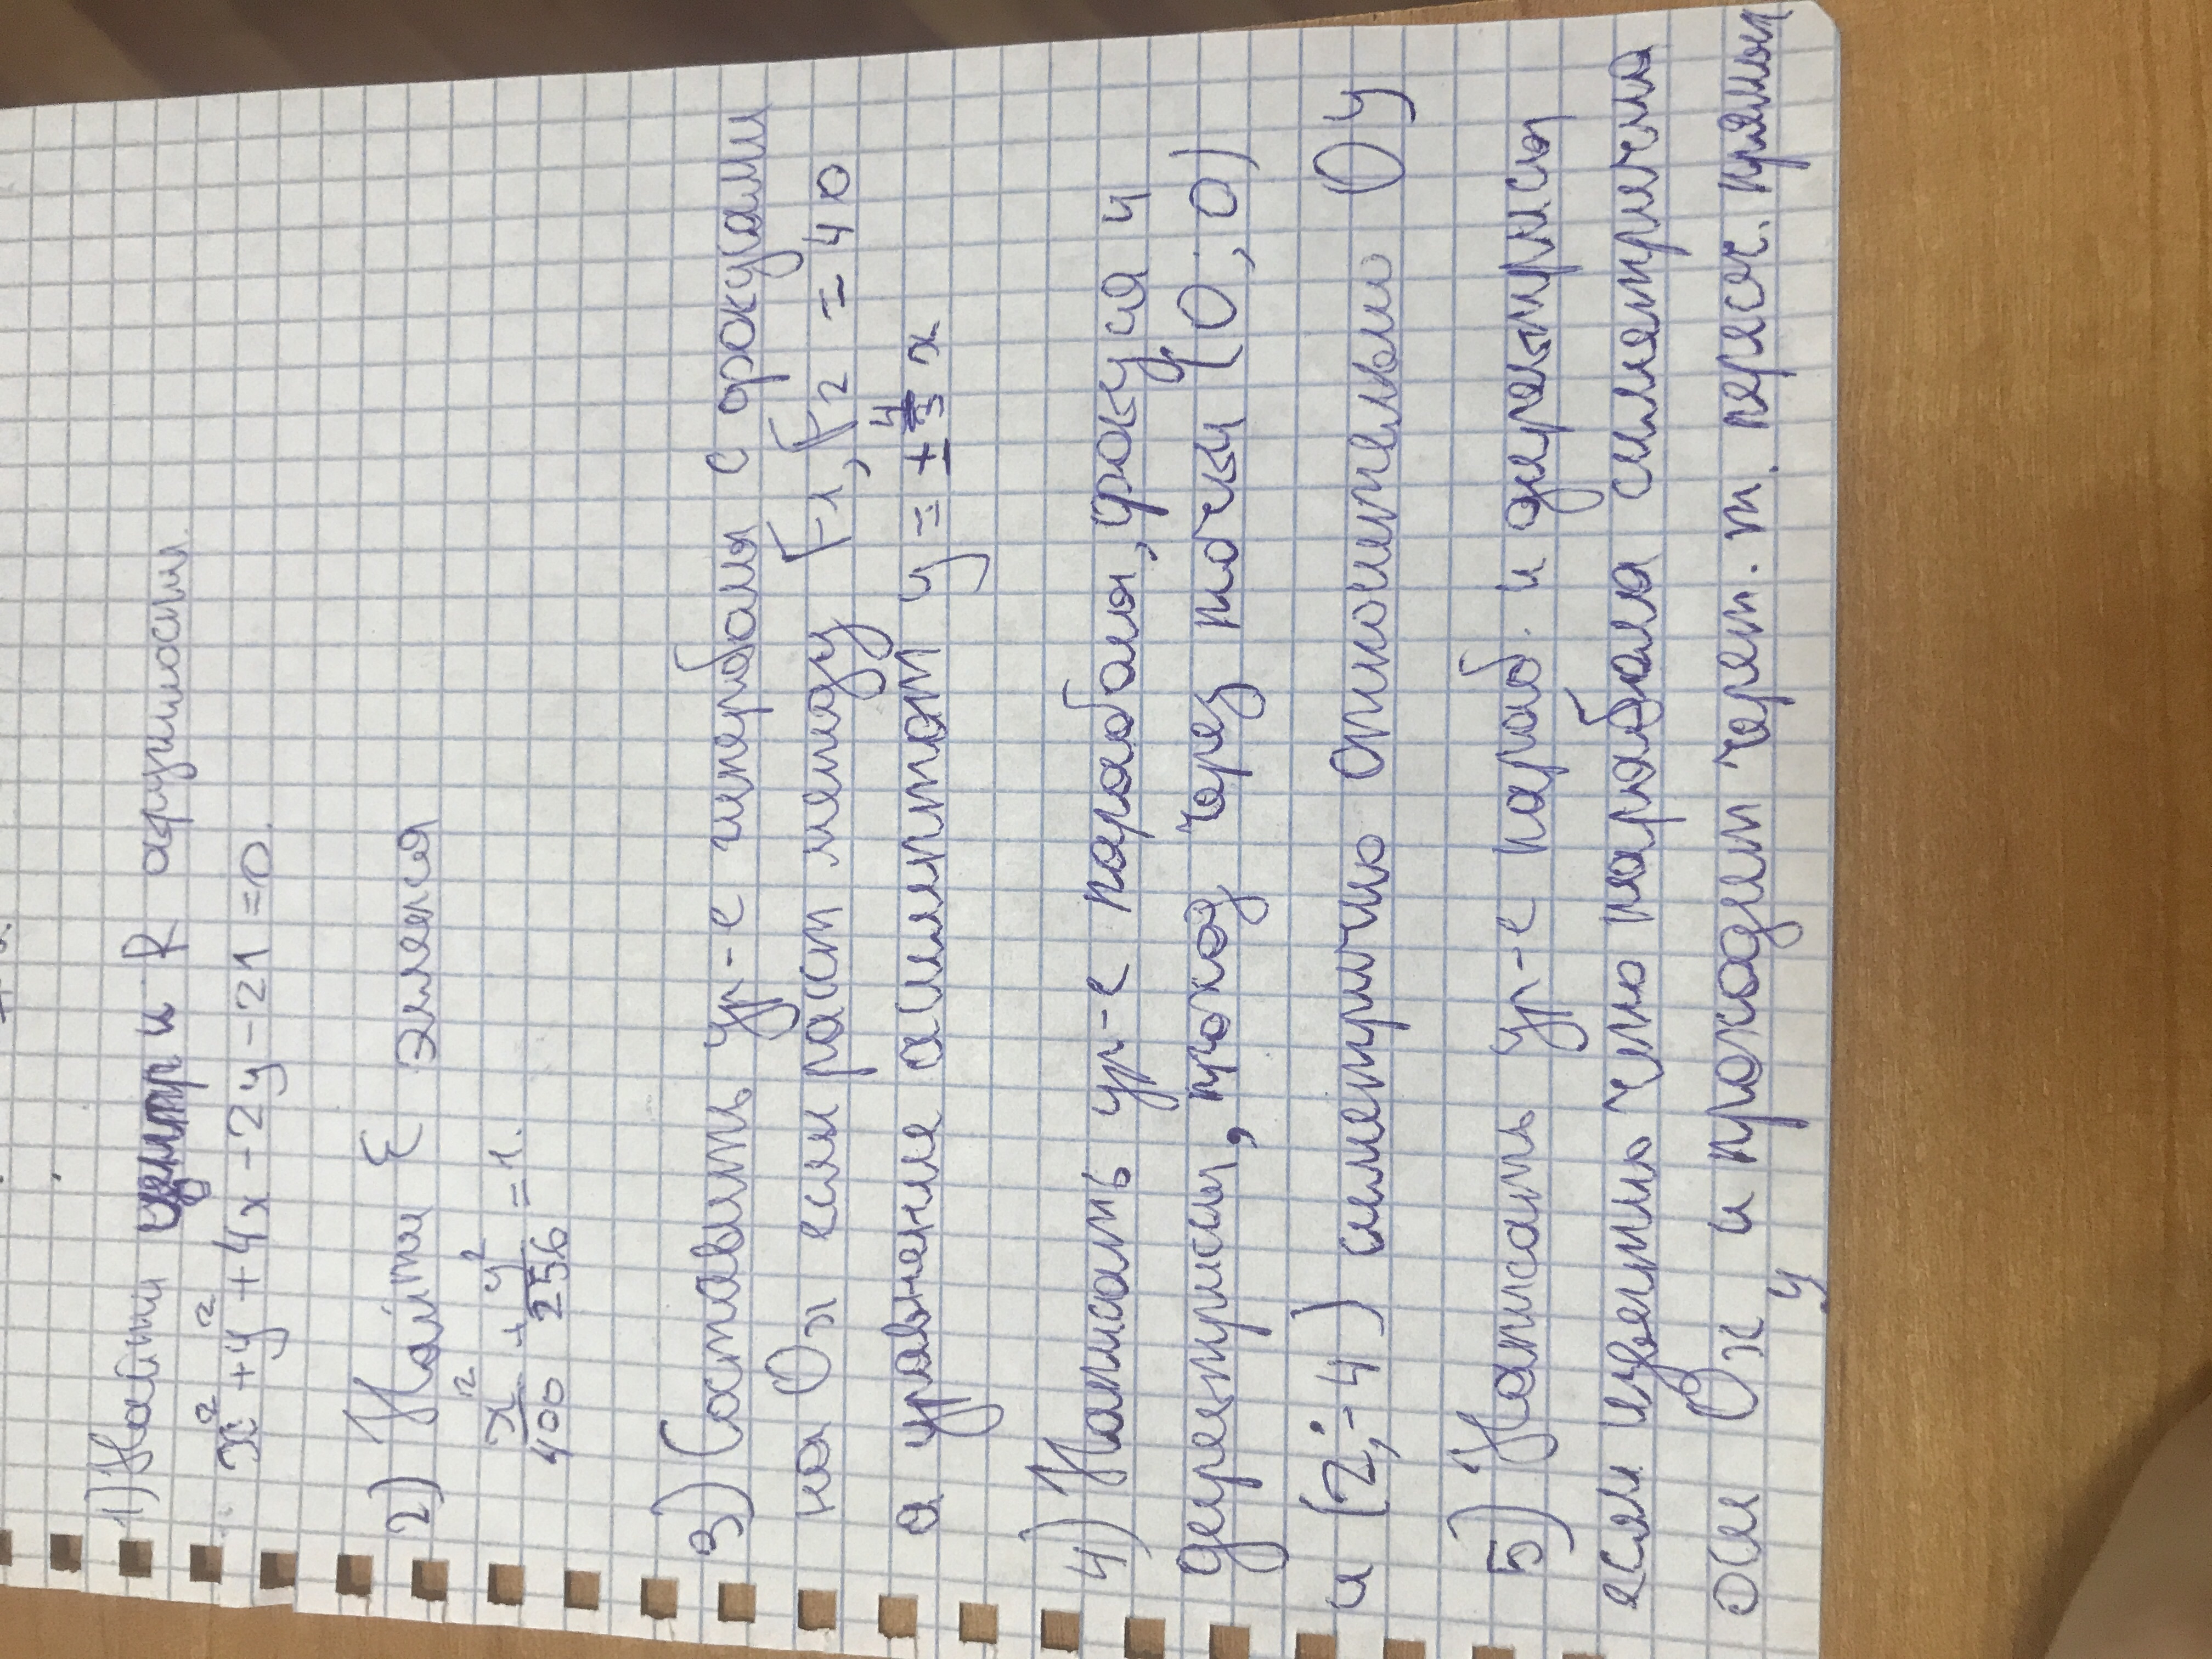 1) Найти центр и R окружности
x² + y² + 4x - 2y - 21 = 0.
2) Найти ε эллипса
x²/400 + y²/256 = 1.
3) Составить ур-е гиперболы с фокусами
на Ox если расст между F1, F2 = 40
а уравнение асимптот y = ± 4/3 x
4) Написать ур-е параболы, фокуса и
директрисы, проход через точки (0; 0)
и (2; -4) симетрично относительно Oy
5) Написать ур-е параб. и директрисы
если известно что парабола симметрична
оси Ox и проходит через. т. перес. прямой
y